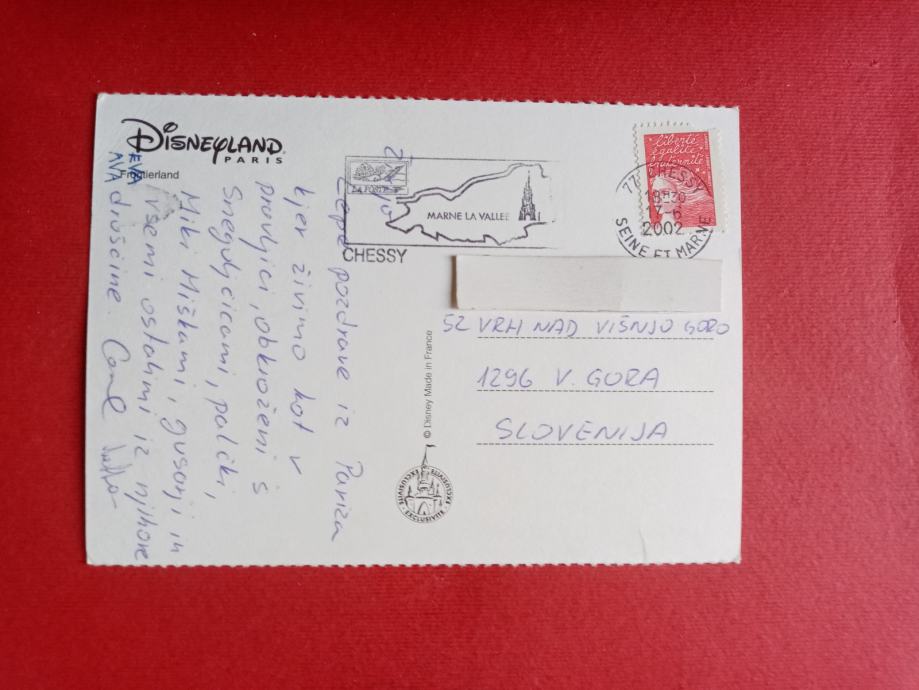 DISNEYLAND
PARIS
Frontierland
LA POSTE
MARNE LA VALLEE
CHESSY
liberté
égalité
fraternité
77 CHESSY
18H30
7-6
2002
SEINE ET MARNE
52 VRH NAD VIŠNJO GORO
1296 V. GORA
SLOVENIJA
© Disney Made in France
Lepe pozdrave iz Pariza
kjer živimo kot v
pravljici, obkroženi s
Sneguljčicami, palčki,
Miki Miškami, gusarji in
vsemi ostalimi iz njihove
druščine.
EVA